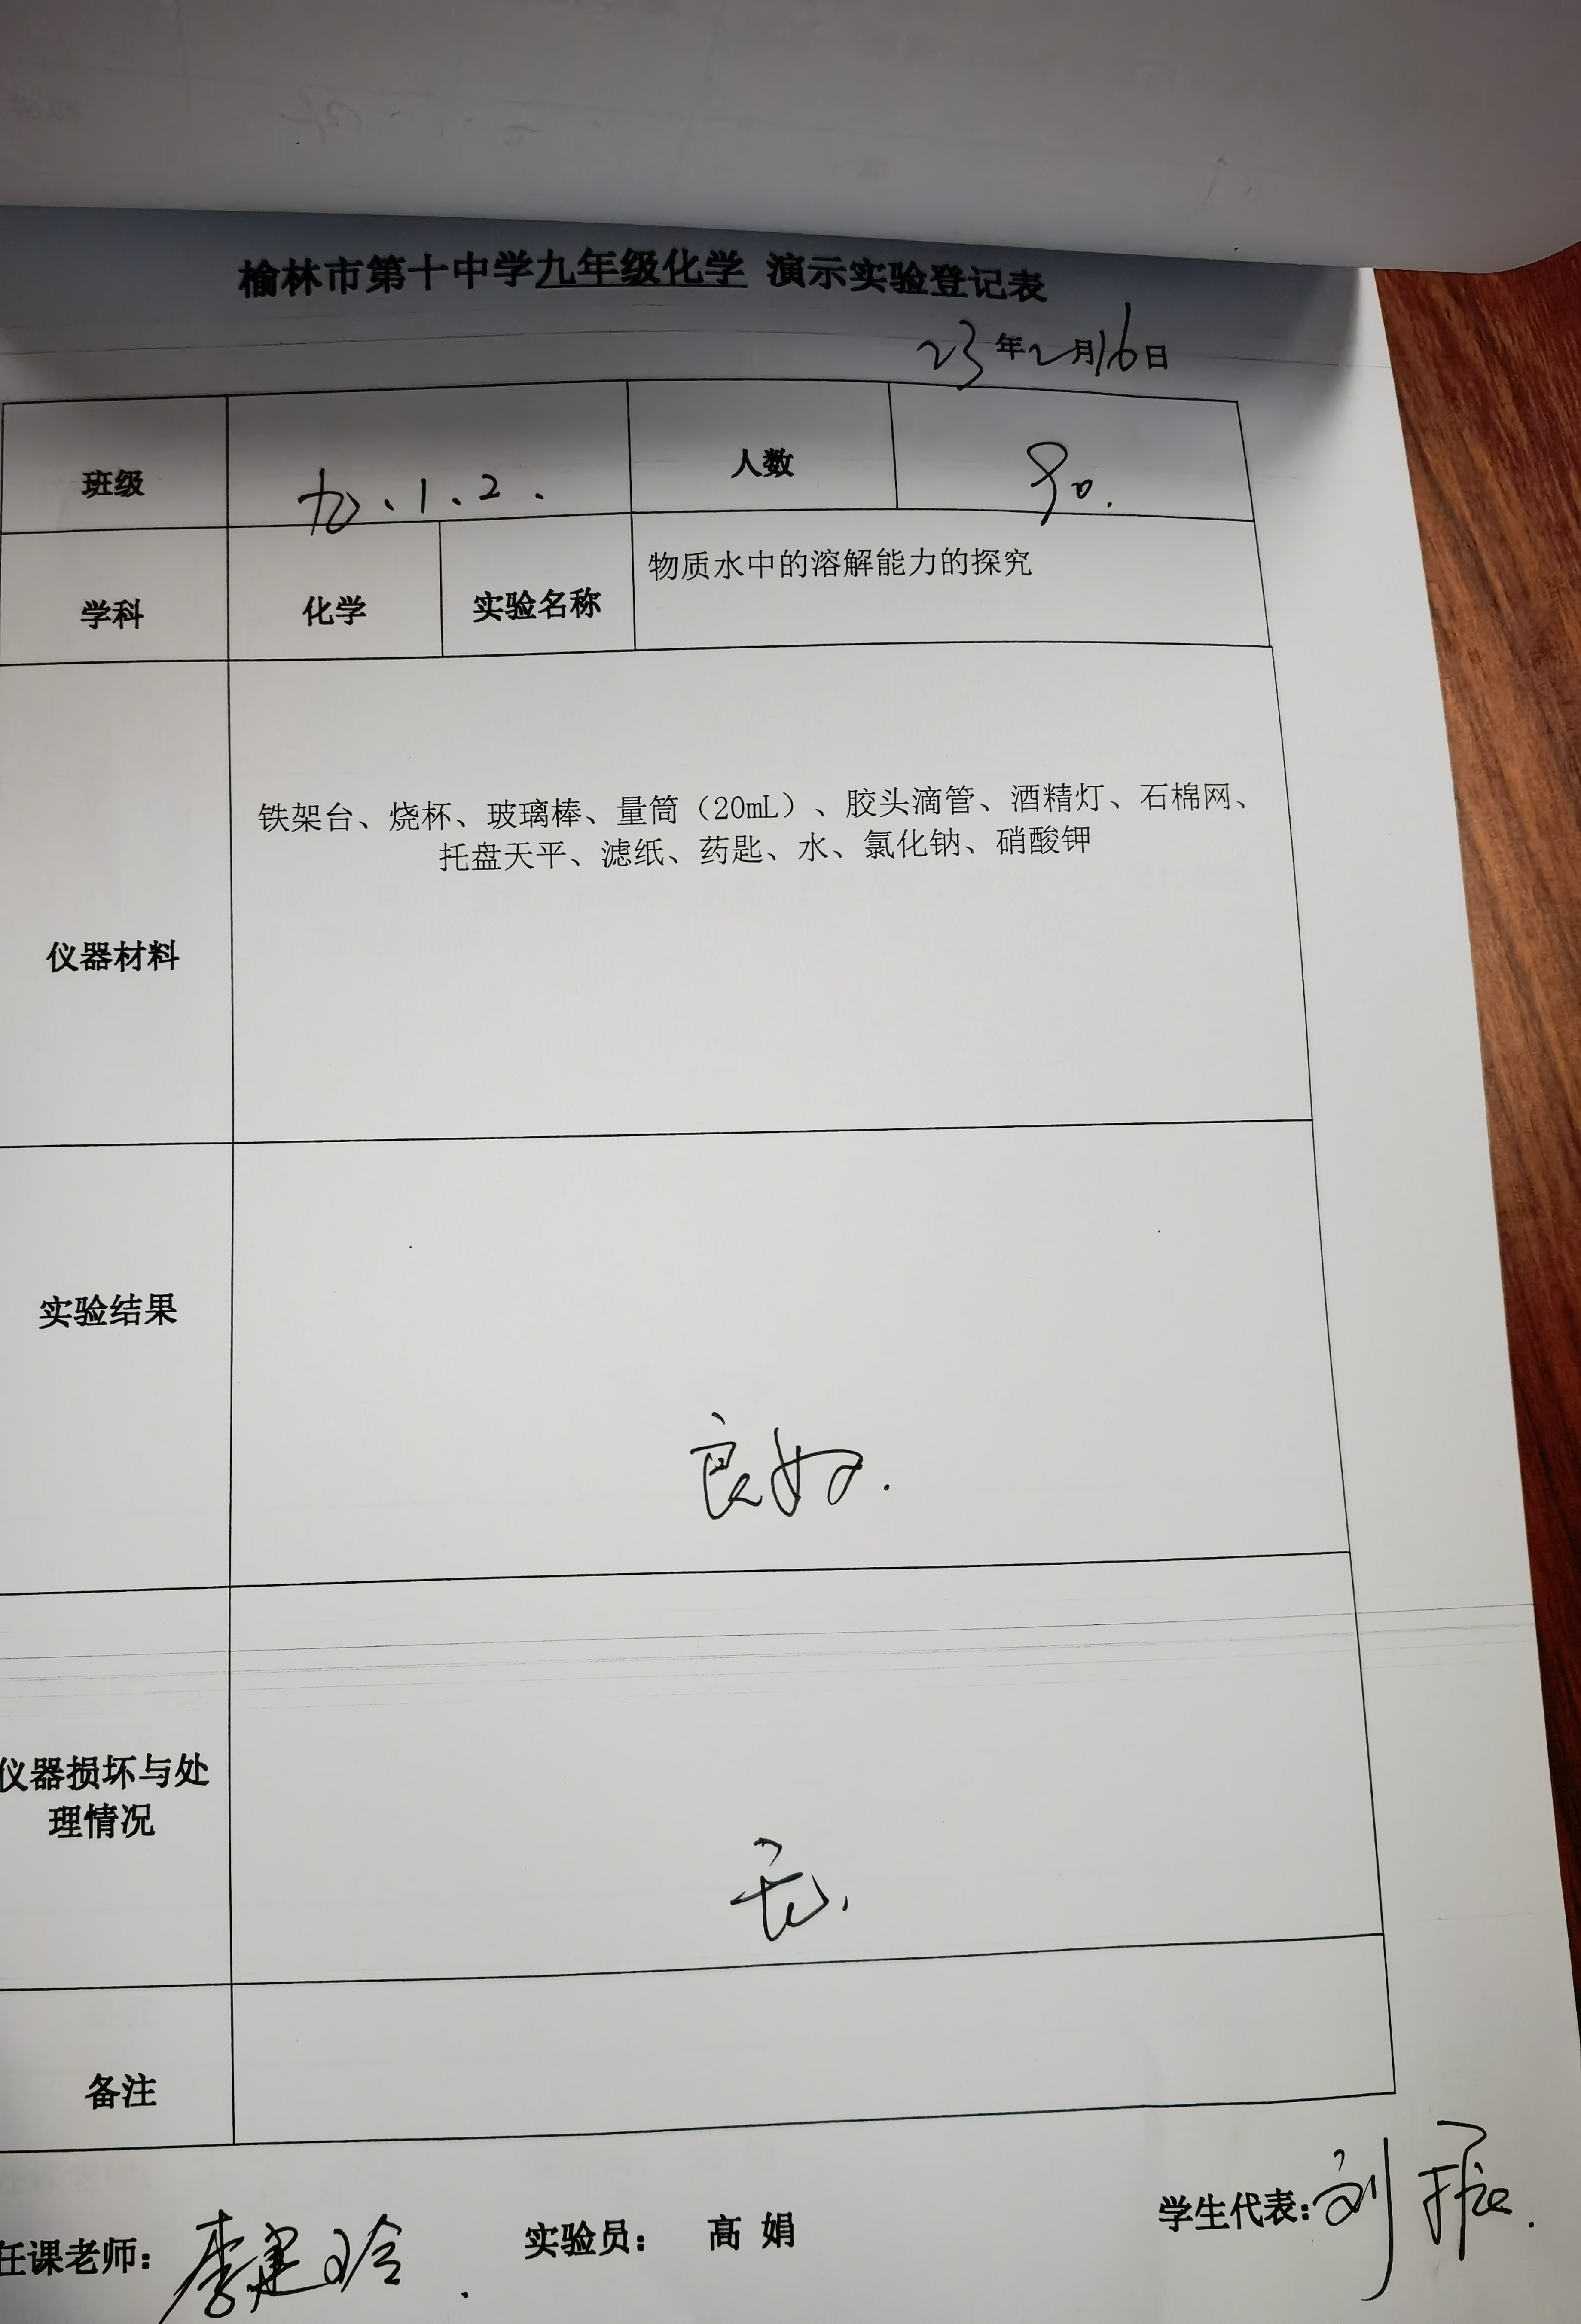 榆林市第十中学九年级化学 演示实验登记表
23年2月16日
班级 九、1、2. 人数 90.
学科 化学 实验名称 物质水中的溶解能力的探究
仪器材料
铁架台、烧杯、玻璃棒、量筒（20mL）、胶头滴管、酒精灯、石棉网、
托盘天平、滤纸、药匙、水、氯化钠、硝酸钾
实验结果 良好.
仪器损坏与处
理情况
无.
备注
任课老师： 李建玲. 实验员： 高 娟 学生代表: 刘振.